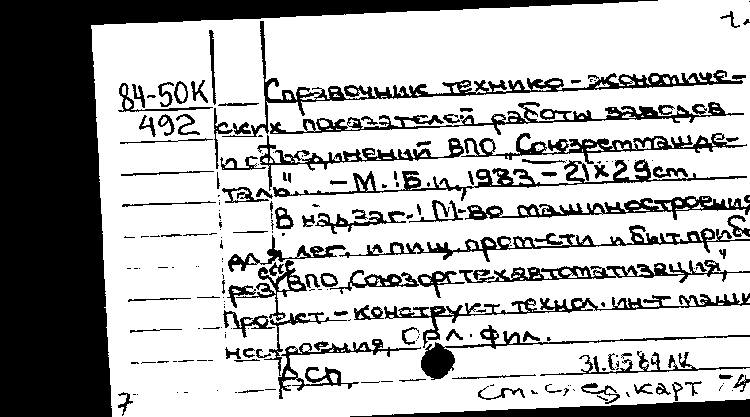 84-50К
492
Справочник технико-экономиче-
ских показателей работы заводов
и объединений ВПО „Союзреммашде-
таль"... - М.: Б.и., 1983 - 21×29см.
В надзаг.: М-во машиностроения
для лег. и пищ. пром-сти и быт. прибо
ров, ВПО „Союзоргтехавтоматизация",
Проект.-конструкт. технол. ин-т маши
ностроения, Орл. фил.
ДСП.
31.05.84 ЛК
См. с, ед. карт
7